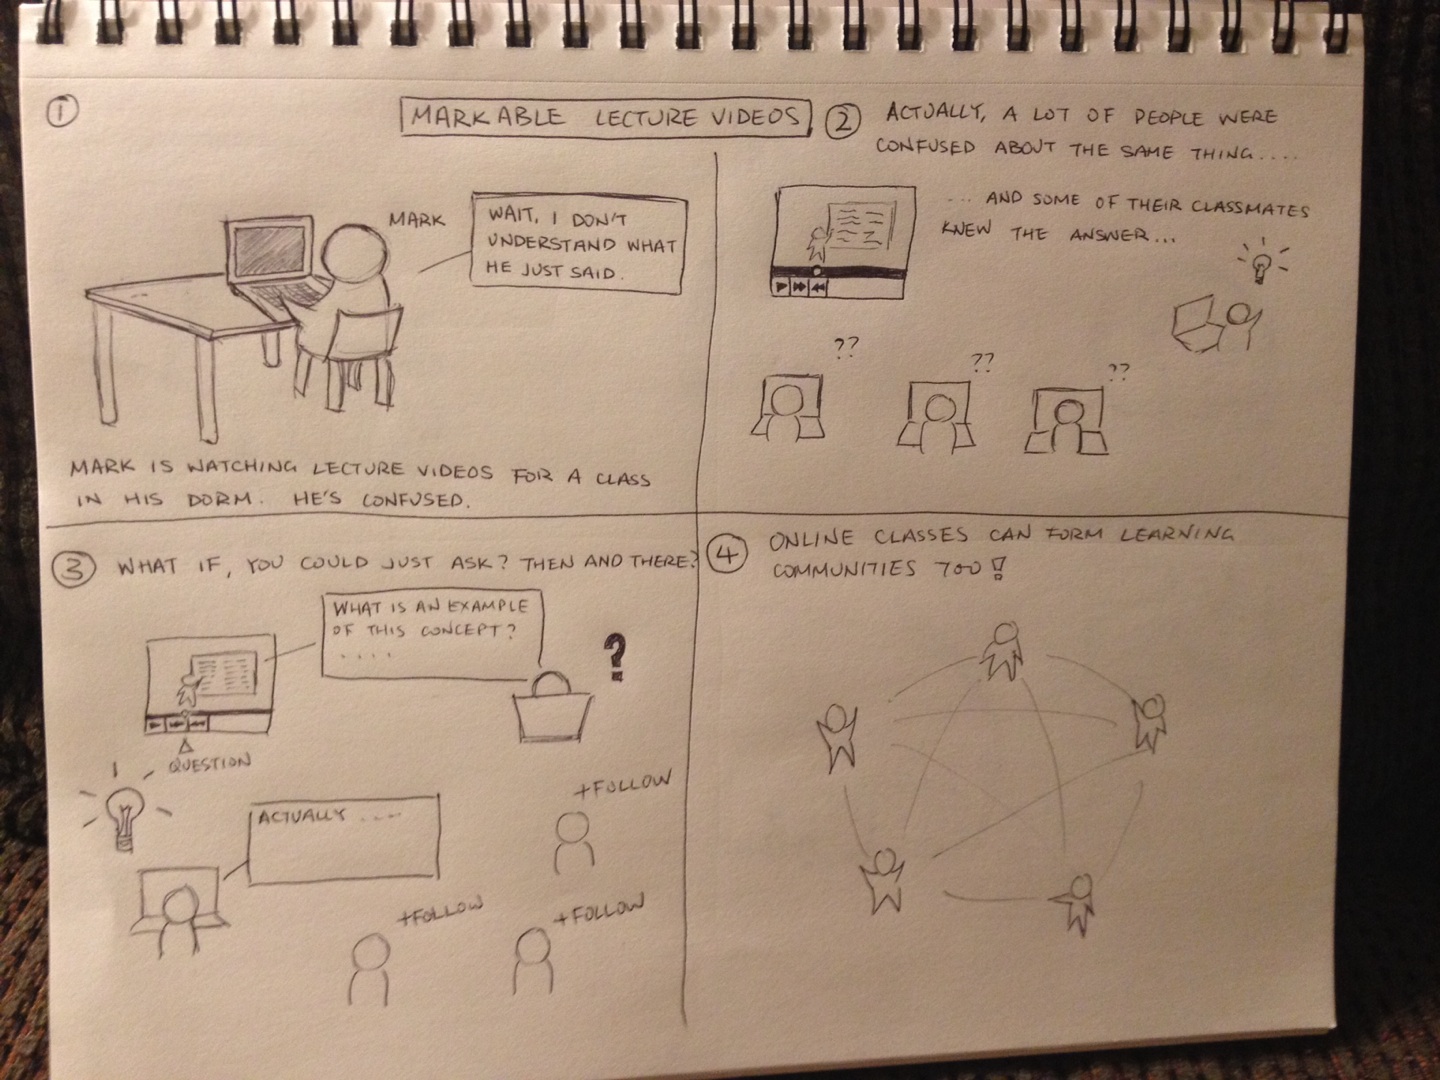 MARKABLE LECTURE VIDEOS
1
MARK
WAIT, I DON'T
UNDERSTAND WHAT
HE JUST SAID.
MARK IS WATCHING LECTURE VIDEOS FOR A CLASS
IN HIS DORM. HE'S CONFUSED.
2
ACTUALLY, A LOT OF PEOPLE WERE
CONFUSED ABOUT THE SAME THING....
... AND SOME OF THEIR CLASSMATES
KNEW THE ANSWER...
??
??
??
3
WHAT IF, YOU COULD JUST ASK? THEN AND THERE?
WHAT IS AN EXAMPLE
OF THIS CONCEPT?
....
?
QUESTION
ACTUALLY ....
+FOLLOW
+FOLLOW
+FOLLOW
4
ONLINE CLASSES CAN FORM LEARNING
COMMUNITIES TOO!